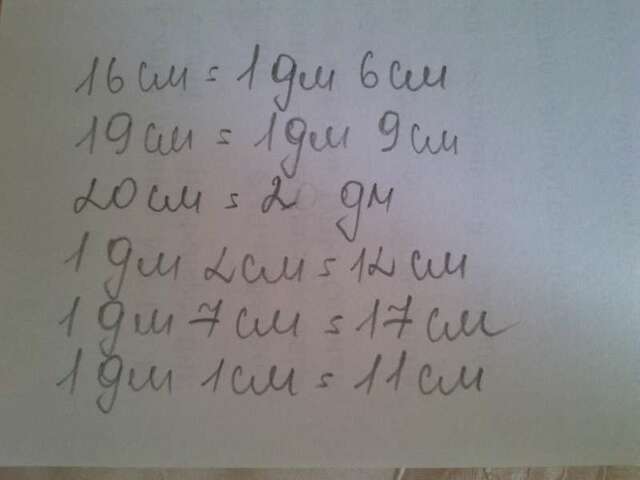 16 см = 1 дм 6 см
19 см = 1 дм 9 см
20 см = 2 дм
1 дм 2 см = 12 см
1 дм 7 см = 17 см
1 дм 1 см = 11 см